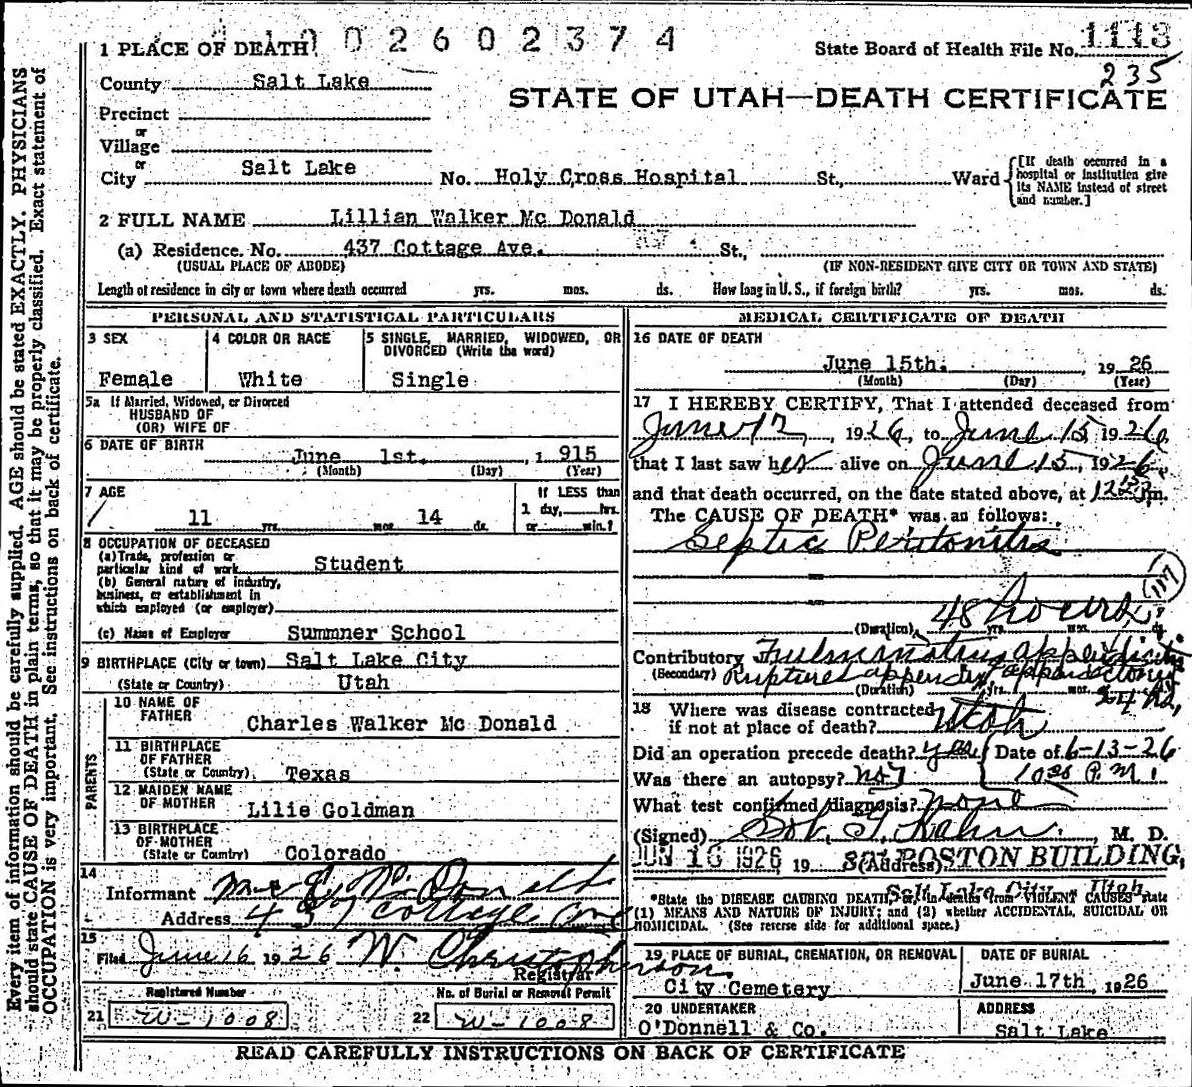 1002602374
1 PLACE OF DEATH
State Board of Health File No. 1113
235
County Salt Lake
STATE OF UTAH—DEATH CERTIFICATE
Precinct
or
Village
or
City Salt Lake No. Holy Cross Hospital St., Ward
[If death occurred in a
hospital or institution give
its NAME instead of street
and number.]
2 FULL NAME Lillian Walker Mc Donald
(a) Residence. No. 437 Cottage Ave. St.,
(USUAL PLACE OF ABODE) (IF NON-RESIDENT GIVE CITY OR TOWN AND STATE)
Length of residence in city or town where death occurred yrs. mos. ds. How long in U. S., if foreign birth? yrs. mos. ds.
PERSONAL AND STATISTICAL PARTICULARS
3 SEX
Female
4 COLOR OR RACE
White
5 SINGLE, MARRIED, WIDOWED, OR
DIVORCED (Write the word)
Single
5a If Married, Widowed, or Divorced
HUSBAND OF
(OR) WIFE OF
6 DATE OF BIRTH
June 1st. , 1 915
(Month) (Day) (Year)
7 AGE
11 yrs. mos. 14 ds.
If LESS than
1 day, hrs.
or min.?
8 OCCUPATION OF DECEASED
(a) Trade, profession or
particular kind of work Student
(b) General nature of industry,
business, or establishment in
which employed (or employer)
(c) Name of Employer Summner School
9 BIRTHPLACE (City or town) Salt Lake City
(State or Country) Utah
PARENTS
10 NAME OF
FATHER Charles Walker Mc Donald
11 BIRTHPLACE
OF FATHER
(State or Country) Texas
12 MAIDEN NAME
OF MOTHER Lilie Goldman
13 BIRTHPLACE
OF MOTHER
(State or Country) Colorado
14
Informant Mrs C. Mc Donald
Address 437 Cottage Ave
15
Filed June 16 1926 W. Christopherson
Registrar
Registered Number
21 W-1008
No. of Burial or Removal Permit
22 W-1008
MEDICAL CERTIFICATE OF DEATH
16 DATE OF DEATH
June 15th. , 19 26
(Month) (Day) (Year)
17 I HEREBY CERTIFY, That I attended deceased from
June 12, 1926, to June 15, 1926,
that I last saw her alive on June 15, 1926,
and that death occurred, on the date stated above, at m.
The CAUSE OF DEATH* was as follows:
Septic Peritonitis
117
(Duration) 48 hours yrs. mos. ds.
Contributory Fulminating appendicitis
(Secondary) Ruptured appendix appendectomy
(Duration) yrs. mos. ds.
18 Where was disease contracted
if not at place of death? Utah
Did an operation precede death? yes Date of 6-13-26
10 P.M.
Was there an autopsy? no
What test confirmed diagnosis? none
(Signed) Sol. G. Kahn M. D.
JUN 16 1926, 19 (Address) BOSTON BUILDING,
Salt Lake City, Utah
*State the DISEASE CAUSING DEATH, or, in deaths from VIOLENT CAUSES state
(1) MEANS AND NATURE OF INJURY; and (2) whether ACCIDENTAL, SUICIDAL OR
HOMICIDAL. (See reverse side for additional space.)
19 PLACE OF BURIAL, CREMATION, OR REMOVAL
City Cemetery
DATE OF BURIAL
June 17th, 1926
20 UNDERTAKER
O'Donnell & Co.
ADDRESS
Salt Lake
READ CAREFULLY INSTRUCTIONS ON BACK OF CERTIFICATE
Every item of information should be carefully supplied. AGE should be stated EXACTLY. PHYSICIANS
should state CAUSE OF DEATH in plain terms, so that it may be properly classified. Exact statement of
OCCUPATION is very important. See instructions on back of certificate.